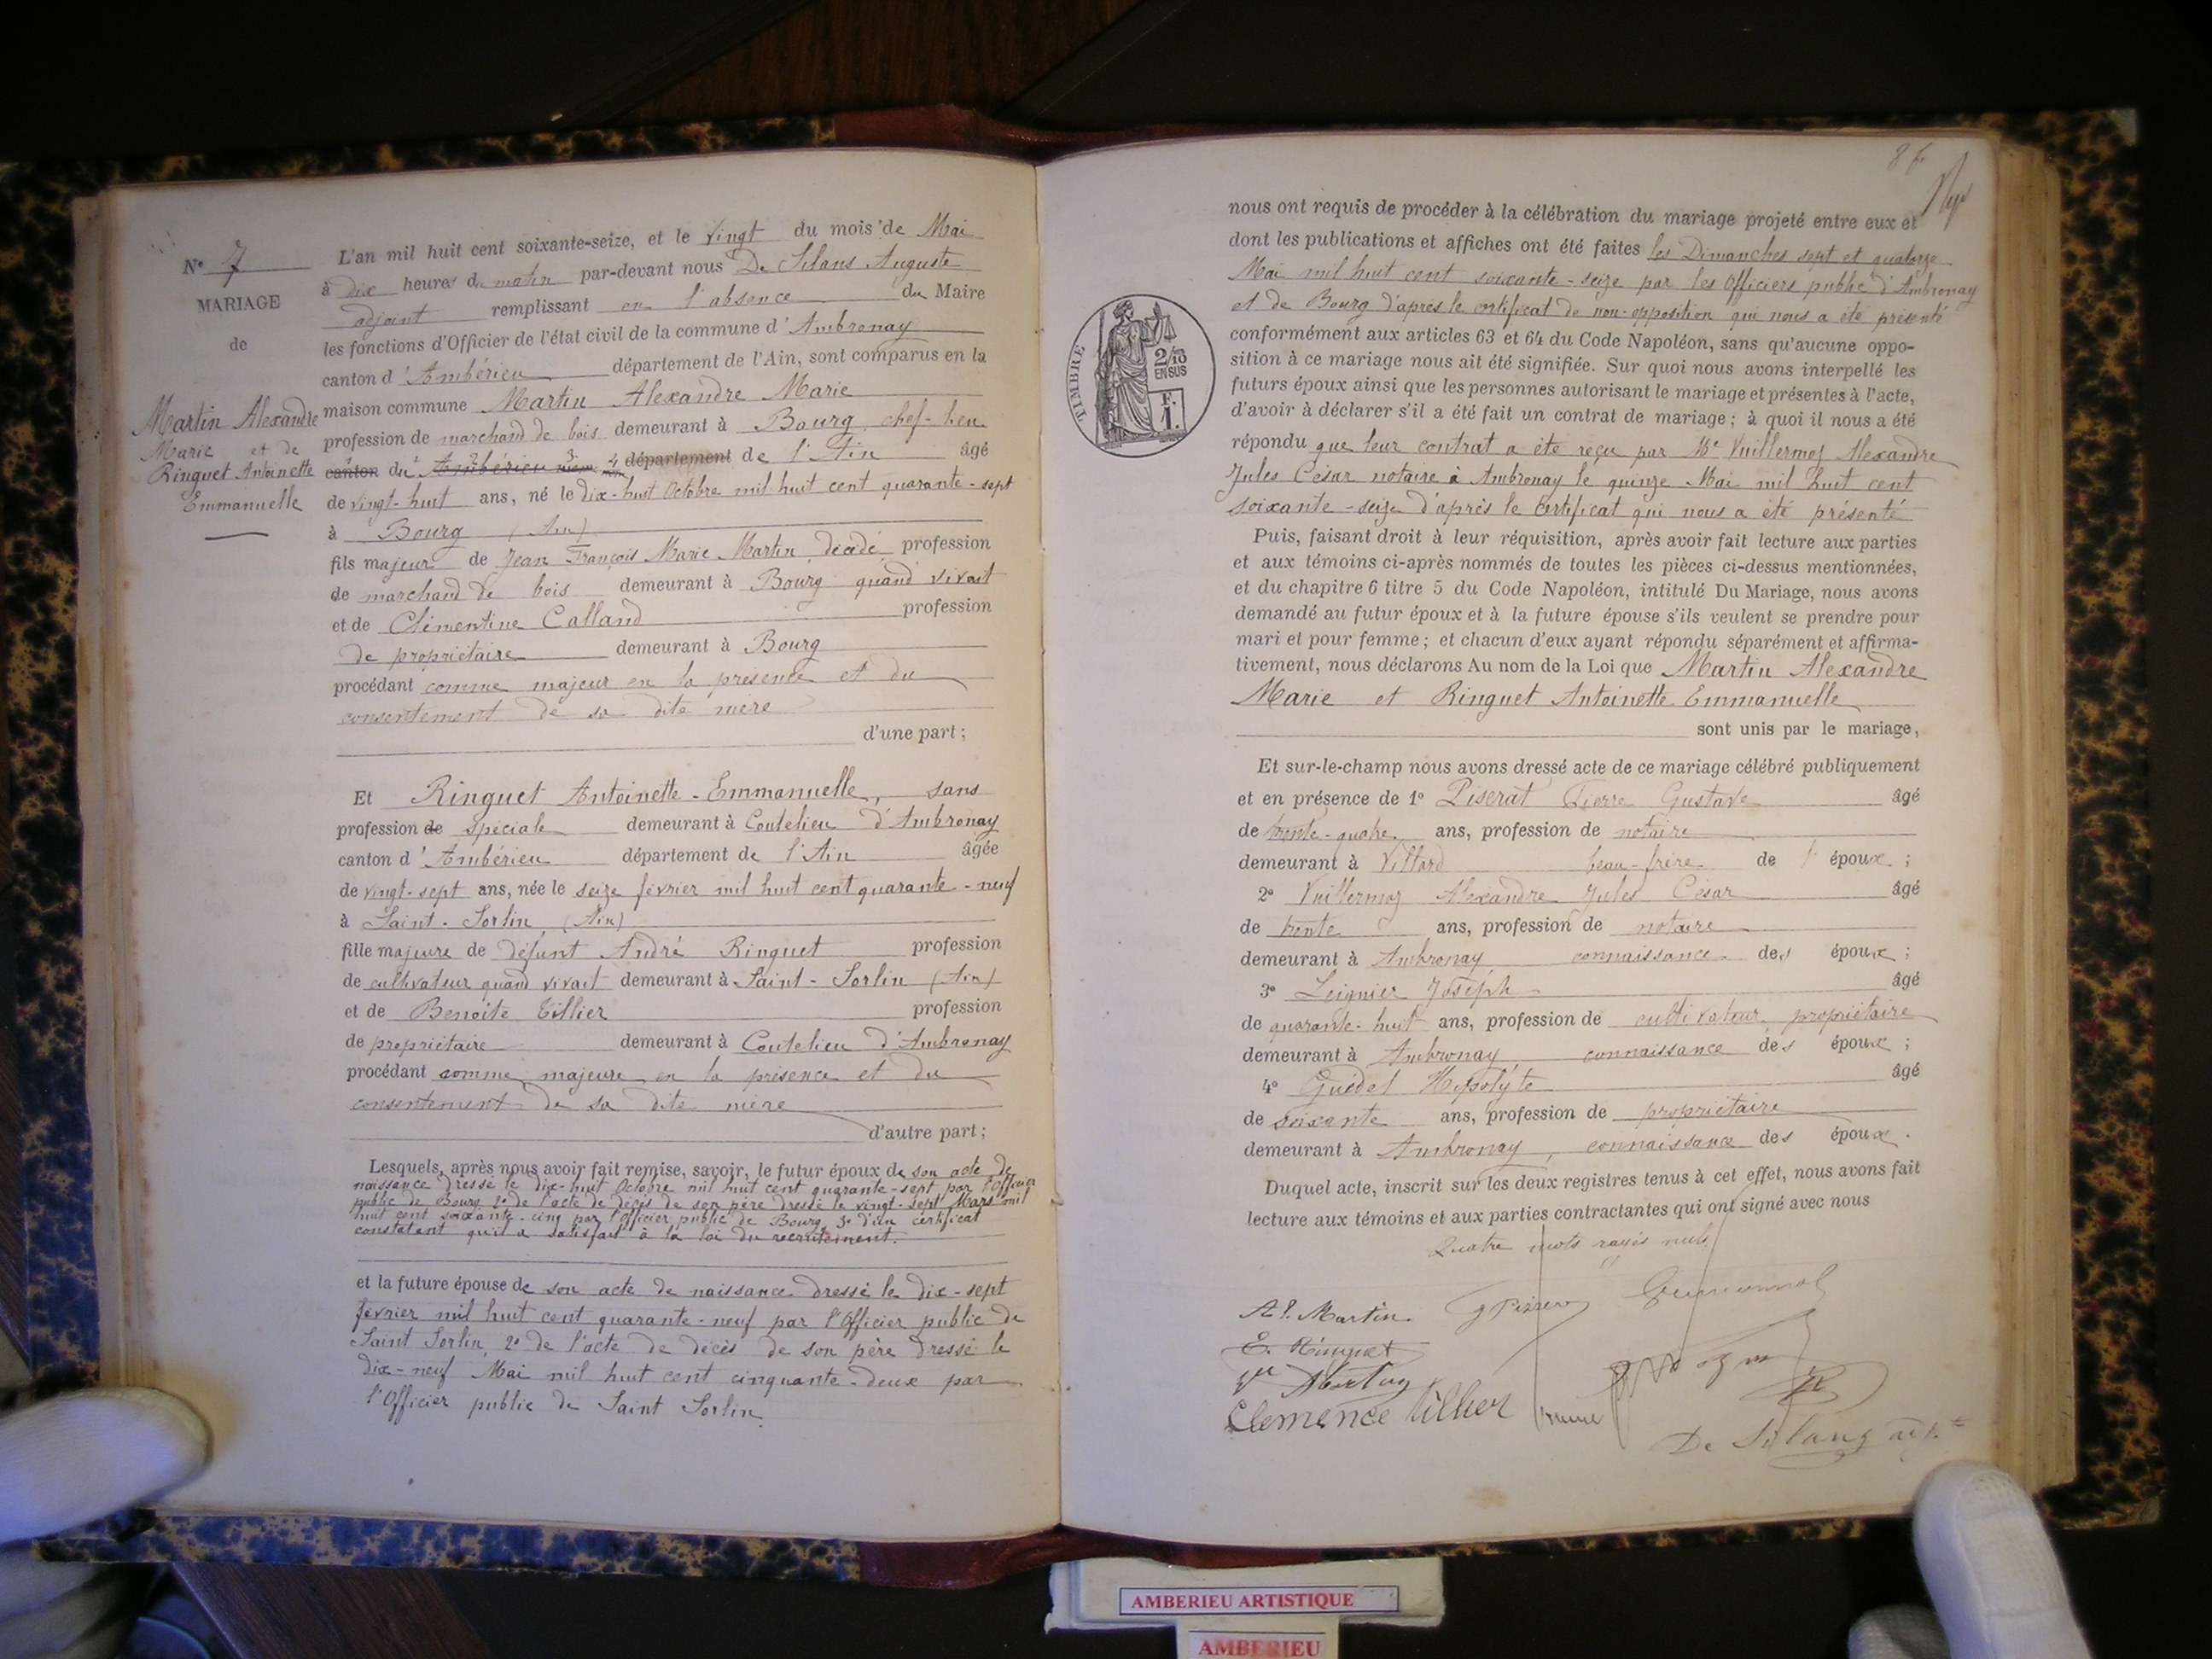 N° 7
MARIAGE
de
Martin Alexandre
Marie et de
Ringuet Antoinette
Emmanuelle
L'an mil huit cent soixante-seize, et le vingt du mois de Mai
à dix heures du matin par-devant nous De Silans Auguste
adjoint remplissant en l'absence du Maire
les fonctions d'Officier de l'état civil de la commune d'Ambronay
canton d'Ambérieu département de l'Ain, sont comparus en la
maison commune Martin Alexandre Marie
profession de marchand de bois demeurant à Bourg, chef-lieu
canton du Ambérieu département de l'Ain âgé
de vingt-huit ans, né le dix-huit Octobre mil huit cent quarante-sept
à Bourg (Ain)
fils majeur de Jean François Marie Martin, décédé profession
de marchand de bois demeurant à Bourg quand vivait
et de Clémentine Calland profession
de propriétaire demeurant à Bourg
procédant comme majeur en la présence et du
consentement de sa dite mère
d'une part;
Et Ringuet Antoinette-Emmanuelle, sans
profession de spéciale demeurant à Coutelieu d'Ambronay
canton d'Ambérieu département de l'Ain âgée
de vingt-sept ans, née le seize février mil huit cent quarante-neuf
à Saint-Sorlin (Ain)
fille majeure de défunt André Ringuet profession
de cultivateur quand vivait demeurant à Saint-Sorlin (Ain)
et de Benoite Tillier profession
de propriétaire demeurant à Coutelieu d'Ambronay
procédant comme majeure en la présence et du
consentement de sa dite mère
d'autre part;
Lesquels, après nous avoir fait remise, savoir, le futur époux de son acte de
naissance dressé le dix-huit Octobre mil huit cent quarante-sept par l'Officier
public de Bourg, 2° de l'acte de décès de son père dressé le vingt-sept Mars mil
huit cent soixante-cinq par l'Officier public de Bourg, 3° d'un certificat
constatant qu'il a satisfait à la loi du recrutement.
et la future épouse de son acte de naissance dressé le dix-sept
février mil huit cent quarante-neuf par l'Officier public de
Saint Sorlin, 2° de l'acte de décès de son père dressé le
dix-neuf Mai mil huit cent cinquante-deux par
l'Officier public de Saint Sorlin.
nous ont requis de procéder à la célébration du mariage projeté entre eux et
dont les publications et affiches ont été faites les Dimanches sept et quatorze
Mai mil huit cent soixante-seize par les Officiers public d'Ambronay
et de Bourg d'après le certificat de non-opposition qui nous a été présenté
conformément aux articles 63 et 64 du Code Napoléon, sans qu'aucune oppo-
sition à ce mariage nous ait été signifiée. Sur quoi nous avons interpellé les
futurs époux ainsi que les personnes autorisant le mariage et présentes à l'acte,
d'avoir à déclarer s'il a été fait un contrat de mariage; à quoi il nous a été
répondu que leur contrat a été reçu par Me Vuillermoz Alexandre
Jules César notaire à Ambronay le quinze Mai mil huit cent
soixante-seize d'après le certificat qui nous a été présenté
TIMBRE
2/10
EN SUS
F.
1.
Puis, faisant droit à leur réquisition, après avoir fait lecture aux parties
et aux témoins ci-après nommés de toutes les pièces ci-dessus mentionnées,
et du chapitre 6 titre 5 du Code Napoléon, intitulé Du Mariage, nous avons
demandé au futur époux et à la future épouse s'ils veulent se prendre pour
mari et pour femme; et chacun d'eux ayant répondu séparément et affirma-
tivement, nous déclarons Au nom de la Loi que Martin Alexandre
Marie et Ringuet Antoinette Emmanuelle
sont unis par le mariage,
Et sur-le-champ nous avons dressé acte de ce mariage célébré publiquement
et en présence de 1° Piserat Pierre Gustave âgé
de trente-quatre ans, profession de notaire
demeurant à Villard beau-frère de l'époux;
2° Vuillermoz Alexandre Jules César âgé
de trente ans, profession de notaire
demeurant à Ambronay connaissance des époux;
3° Leignier Joseph âgé
de quarante-huit ans, profession de cultivateur propriétaire
demeurant à Ambronay connaissance des époux;
4° Guédel Hypolyte âgé
de soixante ans, profession de propriétaire
demeurant à Ambronay, connaissance des époux.
Duquel acte, inscrit sur les deux registres tenus à cet effet, nous avons fait
lecture aux témoins et aux parties contractantes qui ont signé avec nous
Quatre mots rayés nuls
Al. Martin.
E. Ringuet
Clemence Tillier
De Silans adjt
AMBERIEU ARTISTIQUE
AMBERIEU